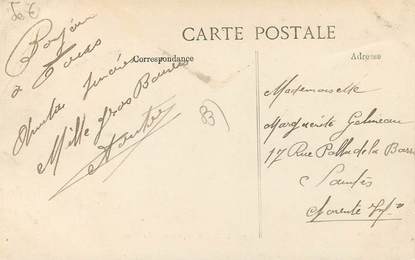 5 €
CARTE POSTALE
Correspondance
Adresse
Bonjour
à tous
Amitiés sincères
Mille gros Baisers
83
Mademoiselle
Marguerite Gelineau
17 Rue Pallu de la Barre
Saintes